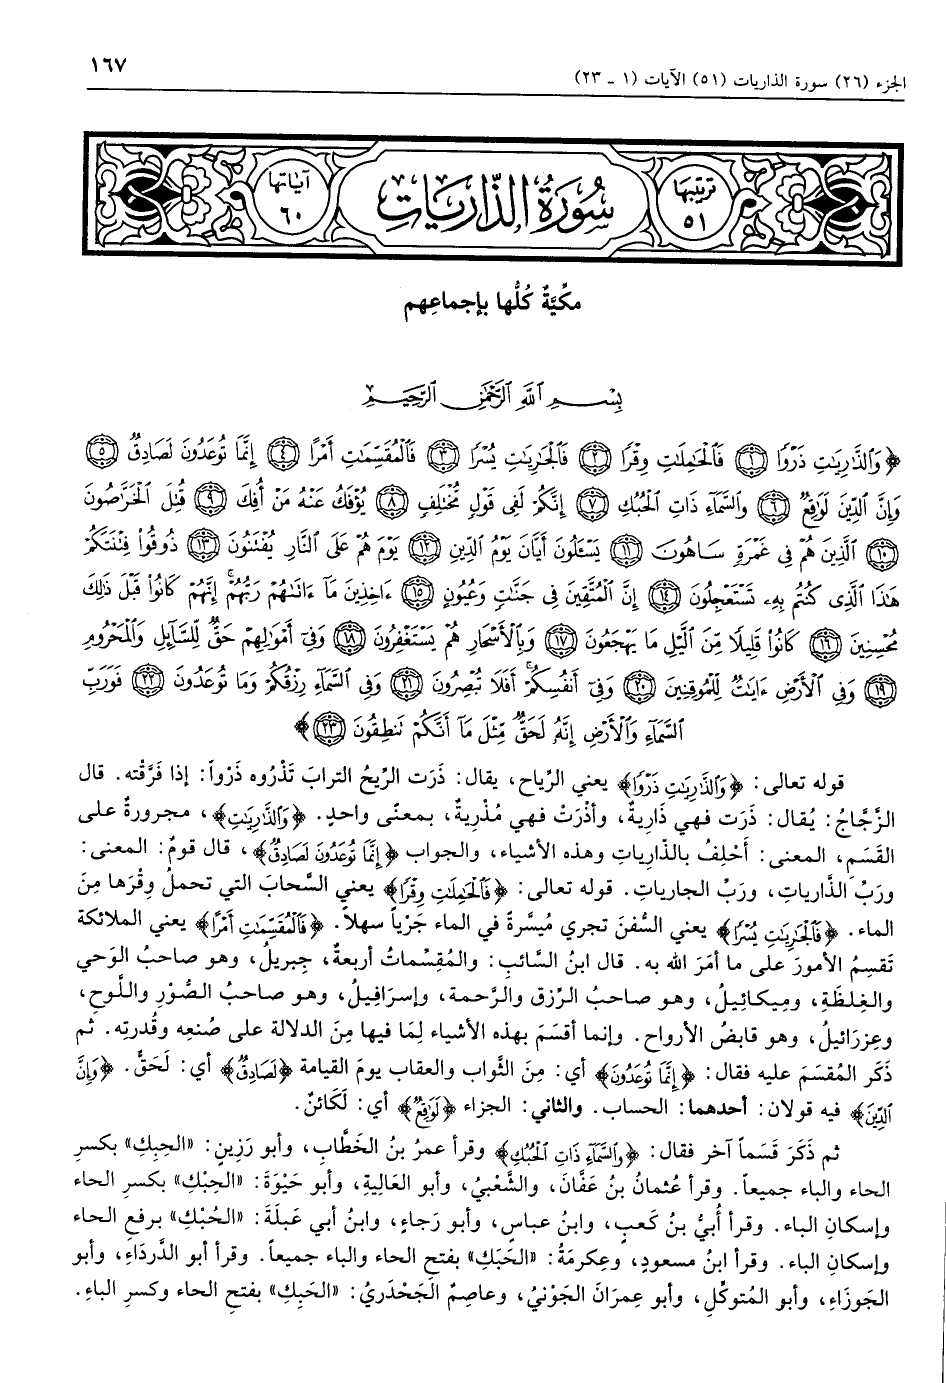 الجزء (٢٦) سورة الذاريات (٥١) الآيات (١ - ٢٣)
١٦٧
ترتيبها ٥١
سُورَةُ الذّاريَات
آياتها ٦٠
مكِّيَّةٌ كُلُّها بإجماعِهم
بِسْمِ ٱللَّهِ ٱلرَّحْمَٰنِ ٱلرَّحِيمِ
﴿ وَٱلذَّٰرِيَٰتِ ذَرْوًا ۝١ فَٱلْحَٰمِلَٰتِ وِقْرًا ۝٢ فَٱلْجَٰرِيَٰتِ يُسْرًا ۝٣ فَٱلْمُقَسِّمَٰتِ أَمْرًا ۝٤ إِنَّمَا تُوعَدُونَ لَصَادِقٌ ۝٥
وَإِنَّ ٱلدِّينَ لَوَٰقِعٌ ۝٦ وَٱلسَّمَآءِ ذَاتِ ٱلْحُبُكِ ۝٧ إِنَّكُمْ لَفِى قَوْلٍ مُّخْتَلِفٍ ۝٨ يُؤْفَكُ عَنْهُ مَنْ أُفِكَ ۝٩ قُتِلَ ٱلْخَرَّٰصُونَ
۝١٠ ٱلَّذِينَ هُمْ فِى غَمْرَةٍ سَاهُونَ ۝١١ يَسْـَٔلُونَ أَيَّانَ يَوْمُ ٱلدِّينِ ۝١٢ يَوْمَ هُمْ عَلَى ٱلنَّارِ يُفْتَنُونَ ۝١٣ ذُوقُوا۟ فِتْنَتَكُمْ
هَٰذَا ٱلَّذِى كُنتُم بِهِۦ تَسْتَعْجِلُونَ ۝١٤ إِنَّ ٱلْمُتَّقِينَ فِى جَنَّٰتٍ وَعُيُونٍ ۝١٥ ءَاخِذِينَ مَآ ءَاتَىٰهُمْ رَبُّهُمْ ۚ إِنَّهُمْ كَانُوا۟ قَبْلَ ذَٰلِكَ
مُحْسِنِينَ ۝١٦ كَانُوا۟ قَلِيلًا مِّنَ ٱلَّيْلِ مَا يَهْجَعُونَ ۝١٧ وَبِٱلْأَسْحَارِ هُمْ يَسْتَغْفِرُونَ ۝١٨ وَفِىٓ أَمْوَٰلِهِمْ حَقٌّ لِّلسَّآئِلِ وَٱلْمَحْرُومِ
۝١٩ وَفِى ٱلْأَرْضِ ءَايَٰتٌ لِّلْمُوقِنِينَ ۝٢٠ وَفِىٓ أَنفُسِكُمْ ۚ أَفَلَا تُبْصِرُونَ ۝٢١ وَفِى ٱلسَّمَآءِ رِزْقُكُمْ وَمَا تُوعَدُونَ ۝٢٢ فَوَرَبِّ
ٱلسَّمَآءِ وَٱلْأَرْضِ إِنَّهُۥ لَحَقٌّ مِّثْلَ مَآ أَنَّكُمْ تَنطِقُونَ ۝٢٣ ﴾
قوله تعالى: ﴿وَٱلذَّٰرِيَٰتِ ذَرْوًا﴾ يعني الرِّياح، يقال: ذَرَت الرِّيحُ الترابَ تَذْرُوه ذَرْواً: إذا فَرَّقَته. قال
الزَّجَّاجُ: يُقال: ذَرَت فهي ذارِيةٌ، وأذْرَت فهي مُذْرِيةٌ، بمعنًى واحدٍ. ﴿وَٱلذَّٰرِيَٰتِ﴾، مجرورةٌ على
القَسَم، المعنى: أَحْلِفُ بالذَّارياتِ وهذه الأشياء، والجواب ﴿إِنَّمَا تُوعَدُونَ لَصَادِقٌ﴾، قال قومٌ: المعنى:
وربِّ الذَّاريات، وربِّ الجاريات. قوله تعالى: ﴿فَٱلْحَٰمِلَٰتِ وِقْرًا﴾ يعني السَّحابَ التي تحملُ وِقْرَها مِنَ
الماء. ﴿فَٱلْجَٰرِيَٰتِ يُسْرًا﴾ يعني السُّفنَ تجري مُيسَّرةً في الماء جَرْياً سهلاً. ﴿فَٱلْمُقَسِّمَٰتِ أَمْرًا﴾ يعني الملائكة
تَقسِمُ الأمورَ على ما أمَرَ الله به. قال ابنُ السَّائبِ: والمُقسِّماتُ أربعةٌ، جِبريلُ، وهو صاحبُ الوَحي
والغِلظَةِ، ومِيكائيلُ، وهو صاحبُ الرِّزق والرَّحمة، وإسرَافيلُ، وهو صاحبُ الصُّوْرِ واللَّوحِ،
وعِزرَائيلُ، وهو قابضُ الأرواح. وإنما أقسَمَ بهذه الأشياء لِمَا فيها مِنَ الدلالة على صُنعِه وقُدرتِه. ثم
ذَكَر المُقسَمَ عليه فقال: ﴿إِنَّمَا تُوعَدُونَ﴾ أي: مِنَ الثَّواب والعقاب يومَ القيامة ﴿لَصَادِقٌ﴾ أي: لَحَقٌّ. ﴿وَإِنَّ
ٱلدِّينَ﴾ فيه قولان: أحدهما: الحساب. والثاني: الجزاء ﴿لَوَٰقِعٌ﴾ أي: لَكائنٌ.
ثم ذَكَرَ قَسَماً آخر فقال: ﴿وَٱلسَّمَآءِ ذَاتِ ٱلْحُبُكِ﴾ وقرأ عمرُ بنُ الخَطَّابِ، وأبو رَزِينٍ: «الحِبِكِ» بكسرِ
الحاء والباء جميعاً. وقرأ عُثمانُ بنُ عَفَّانَ، والشَّعْبيُّ، وأبو العَالِيةِ، وأبو حَيْوَةَ: «الحِبْكِ» بكسرِ الحاء
وإسكانِ الباء. وقرأ أُبيُّ بنُ كَعبٍ، وابنُ عباسٍ، وأبو رَجاءٍ، وابنُ أبي عَبلَةَ: «الحُبْكِ» برفعِ الحاء
وإسكانِ الباء. وقرأ ابنُ مسعودٍ، وعِكرمَةُ: «الحَبَكِ» بفتحِ الحاء والباء جميعاً. وقرأ أبو الدَّردَاءِ، وأبو
الجَوزَاءِ، وأبو المُتوكِّلِ، وأبو عِمرَانَ الجَوْنيُّ، وعاصِمٌ الجَحْدَريُّ: «الحَبِكِ» بفتحِ الحاء وكسرِ الباءِ.